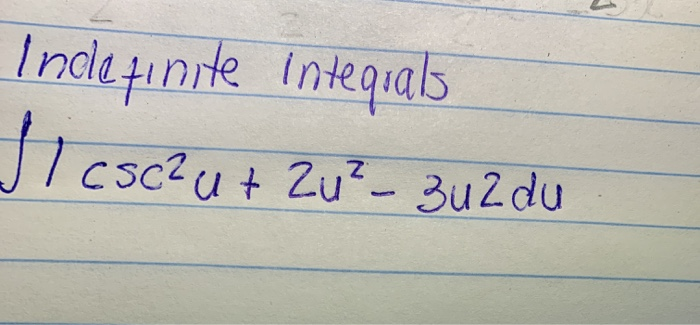 Indefinite Integrals
∫1csc²u + 2u² - 3u2du